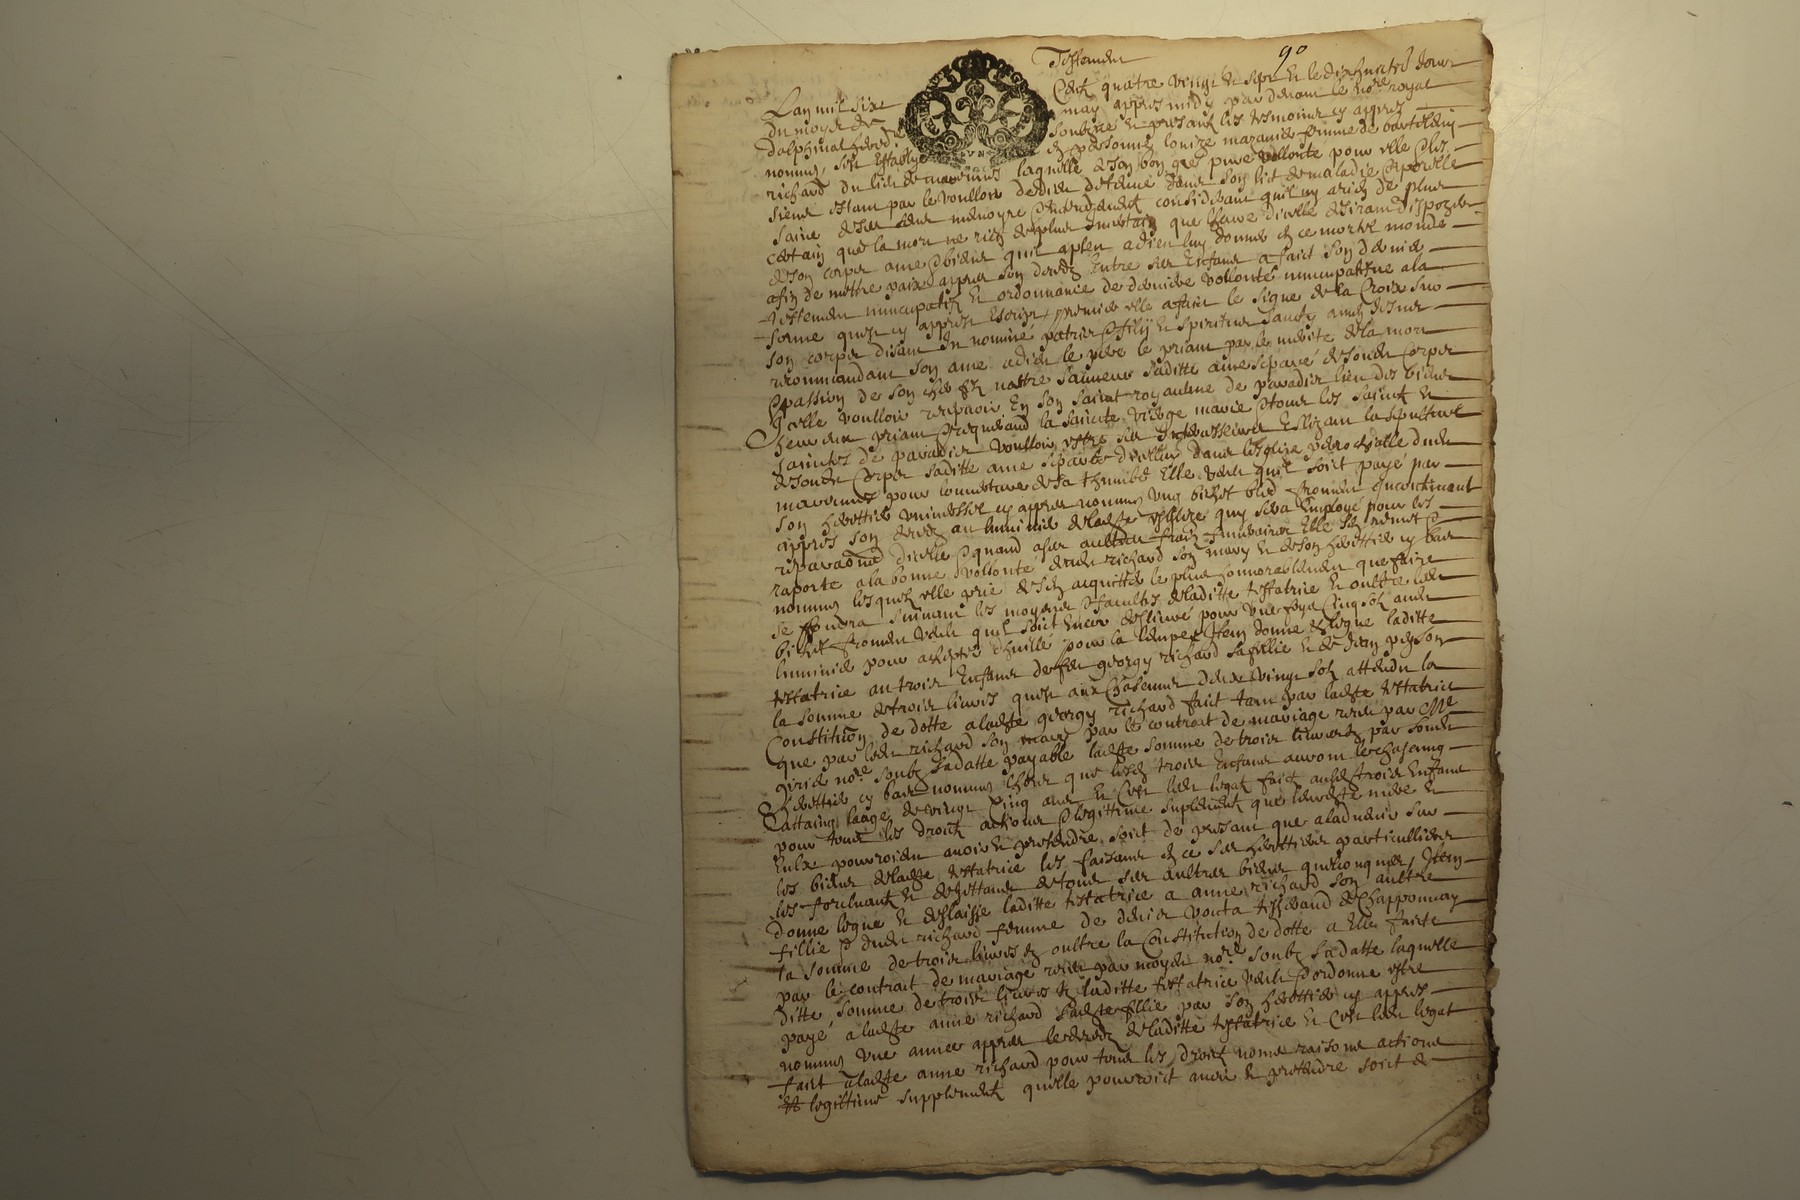 Testement
90
Lan mil six Cent quatre vingt et sept et le dixhuictie Jour
du moys de may appres midy par devant le nore royal
dalphinal heredre soubzne et presantz les tesmoins cy appres
nommes, sest establye en personne louize mazanie femme de barthelemy
richard du lieu de marennes laquelle de son bon gre pure vollonte pour elle & les
siens estant par le voulloir de dieu detenue dans son lict de maladie & par elle
saine de ses sens memoyre & entendement considerant quil ny a rien de plus
certain que la mort ne rien de plus incertain que lheure dicelle desirant dispozer
de son corps ame & biens quil a pleu a dieu luy donner en ce mortel monde
afin de mettre paix appres son deces entre ses enfans a faict son dernier
testement nuncupatif et ordonnance de derniere vollonte nuncupative a la
forme quest cy appres escript, premier elle a faict le signe de la Croix sur
son corps disant In nomine patris & filij et spiritus sancty amen et sur
recommandant son ame a dieu le pere le priant par le merite de la mort
& passion de son cher filz nostre sauveur saditte ame separe de sondt Corps
Icelle voulloir recepvoir en son sainct royaulme de paradis lieu des biens
heureux priant & requerant la saincte vierge marie & tous les sainctz et
sainctes de paradis voulloir estre ses Intercesseurs Eslizant la sepulture
de sondt Corps saditte ame separee dicelluy dans lesglize parrochialle dudt
marennes pour louverture de sa thumbe Elle veut quil soict paye par
son herettier universsel cy appres nomme ung bichet bled froment Incontinant
appres son deces au luminier de ladte esglize quy sera Employe pour les
reparaons dicelle & quand a ses aultres fraiz funeraires Elle sen remet &
raporte a la bonne vollonte dudt richard son mary et de son herettier cy bas
nomme lesquelz elle prie de sen acquitter le plus honnorablement que faire
se pourra suivant les moyens & facultes de laditte testatrice et oultre ledt
bichet froment veut quil soict encor deslivre pour une foys Cinq solz audt
luminier pour achepter dhuille pour la lempe, Item donne & legue laditte
testatrice au trois enfans de feu georgy richard sa fillie et de Jean
la somme de trois livres quest aux Chascungs deux vingt solz attendu la
Constitution de dotte a ladte georgy richard faict tant par ladte testatrice
que par ledt richard son mary par le contrait de mariage receu par Me
girie nore soubz sa datte payable ladte somme de trois livres par sondt
herettier cy bas nomme lhors que lesdt trois enfans auront Ung chascung
attaing laage de vingt Cinq ans et Cest ledt legat faict ausdt trois enfans
pour tous les droitz actions & legittime suplement que leurdte mere et
Eulx pourroient avoir et pretendre soict de presant que a ladvenir sur
les biens de ladte testatrice les faisant en ce ses herettiers particulliers
les forcluant et dejettant de tous ses aultres biens quelconques, Item
donne legue et deslaisse laditte testatrice a anne richard son aultre
fillie & dudt richard femme de denis vouta tisserand de Chapponnay
la somme de trois livres en oultre la Constitution de dotte a Elle faicte
par le contrait de mariage receu par moydt nore soubz sa datte laquelle
ditte somme de trois livres laditte testatrice veult & ordonne estre
paye a ladte anne richard sadte fillie par son herettier cy appres
nomme une annee appres le deces de laditte testatrice et Cest ledt legat
faict a ladte anne richard pour tous les droitz noms raisons actions
et legittime supplement quelle pourroict avoir et pretendre soict de